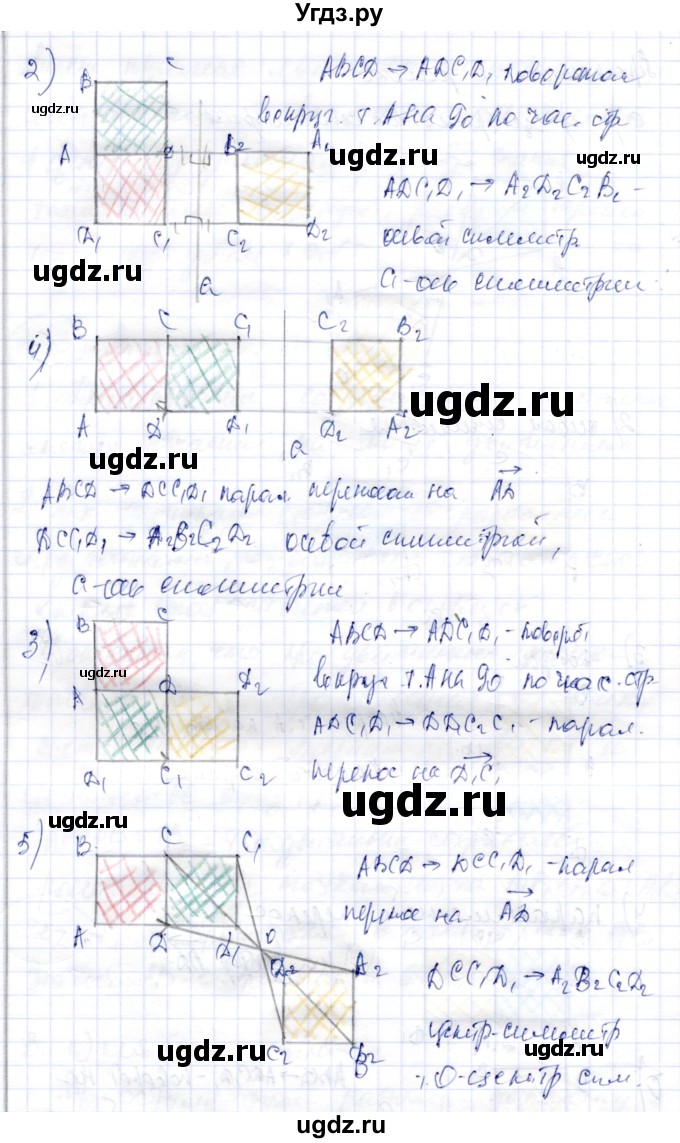 Угдз.ру
2)
B
C
ABCD → ADC₁D₁ поворотом
вокруг т. A на 90° по час. стр
A
D
B₂
A₂
D₁
C₁
C₂
D₂
a
ADC₁D₁ → A₂D₂C₂B₂ -
осевой симметр.
a - ось симметрии
4)
B
C
C₁
C₂
B₂
A
D
D₁
a
D₂
A₂
ABCD → DCC₁D₁ парал. переносом на AD
DCC₁D₁ → A₂B₂C₂D₂ осевой симметрией,
a - ось симметрии
3)
B
C
ABCD → ADC₁D₁ - поворот
вокруг т. A на 90° по час. стр.
A
D
D₂
D₁
C₁
C₂
ADC₁D₁ → DD₂C₂C₁ - парал.
перенос на D₁C₁
5)
B
C
C₁
ABCD → DCC₁D₁ - парал
перенос на AD
A
D
D₁
O
D₂
A₂
C₂
B₂
DCC₁D₁ → A₂B₂C₂D₂
центр. симметр
т. O - центр сим.
ugdz.ru
ugdz.ru
ugdz.ru
ugdz.ru
ugdz.ru
ugdz.ru
ugdz.ru
ugdz.ru
ugdz.ru
ugdz.ru
ugdz.ru
ugdz.ru